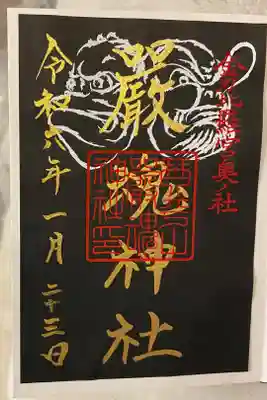 金刀比羅宮奥ノ社
嚴魂神社
令和六年一月二十三日